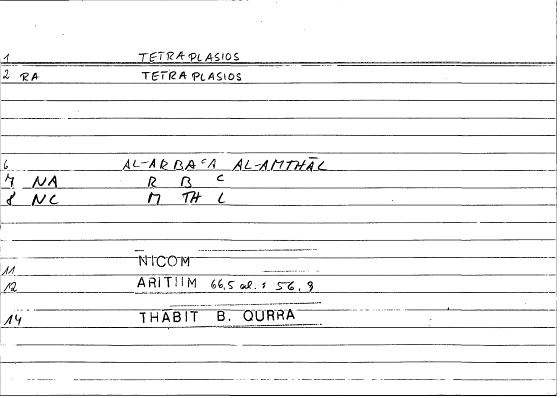 1 TETRAPLASIOS
2 RA TETRAPLASIOS
6 AL-ARBAᶜA AL-AMTHĀL
7 NA R B C
8 NC M TH L
11 NICOM
12 ARITIIM 66,5 al. : 56, 9
14 THABIT B. QURRA